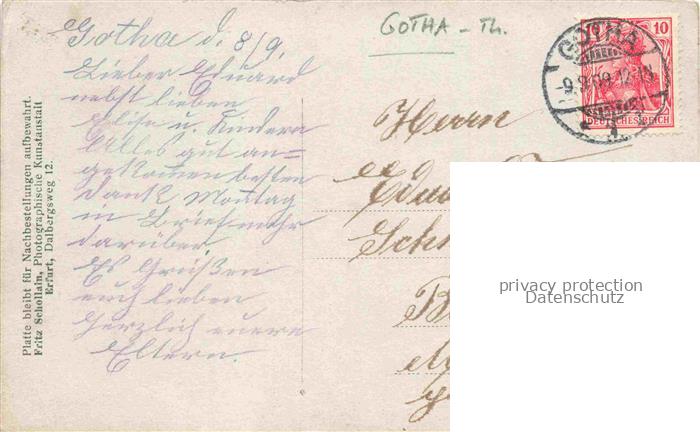 Gotha d. 8/9.
Lieber Eduard
nebst lieben
Elise u. Kindern
Alles gut an=
gekommen besten
Dank Montag
in Brief mehr
darüber
Es Grüßen
euch lieben
herzlich euere
Eltern.
GOTHA - Th.
GOTHA
-9.9.09.12-1N
10
DEUTSCHES REICH
Herrn
Edua
Sch
privacy protection
Datenschutz
Platte bleibt für Nachbestellungen aufbewahrt.
Fritz Schollain, Photographische Kunstanstalt
Erfurt, Dalbergsweg 12.